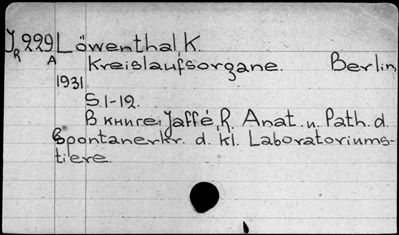 JR 229 A Löwenthal K.
Kreislaufsorgane. Berlin,
1931
S.1-12.
В книге: Jaffé, R. Anat. u. Path. d.
Spontanerkr. d. kl. Laboratoriums-
tiere.